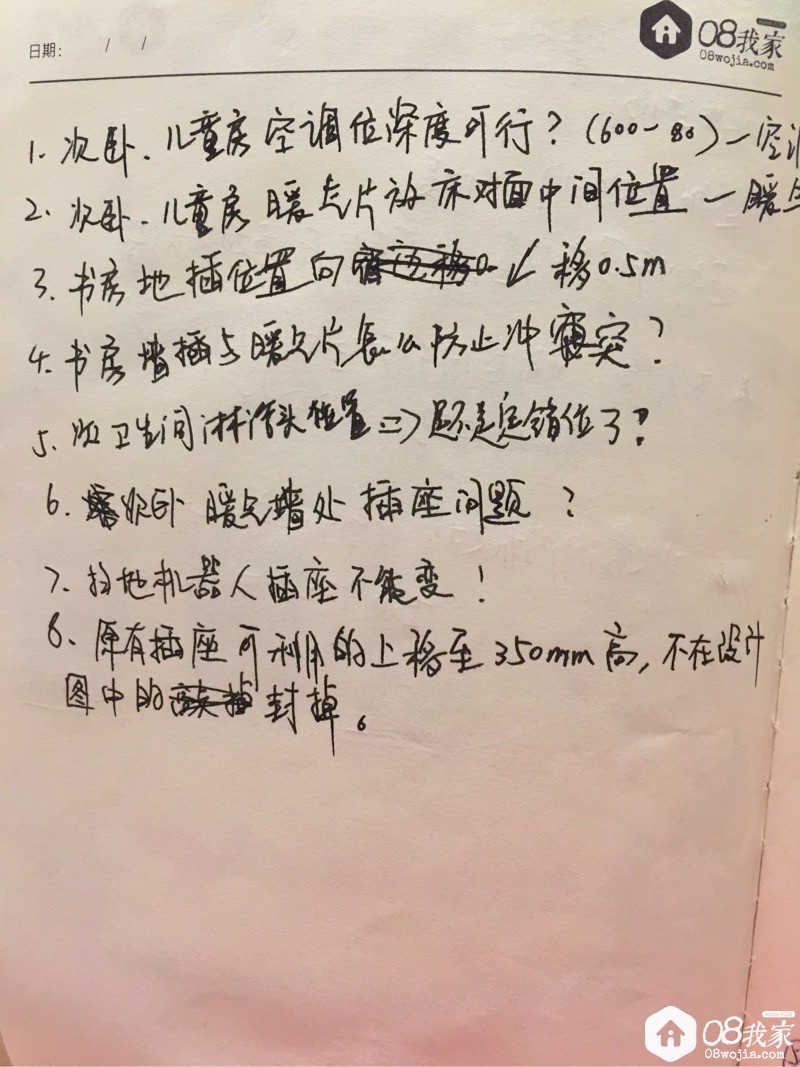 08我家
08wojia.com
日期: / /
1. 次卧、儿童房空调位深度可行?(600-80)—空
2. 次卧、儿童房 暖气片放床对面中间位置 — 暖
3. 书房地插位置向 ↙ 移0.5m
4. 书房墙插与暖气片怎么防止冲突?
5. 次卫生间淋浴头位置 => 是不是错位了?
6. 次卧 暖气墙处 插座问题?
7. 扫地机器人插座不能变!
8. 原有插座可利用的上移至350mm高,不在设计
图中的封掉。
08我家
08wojia.com